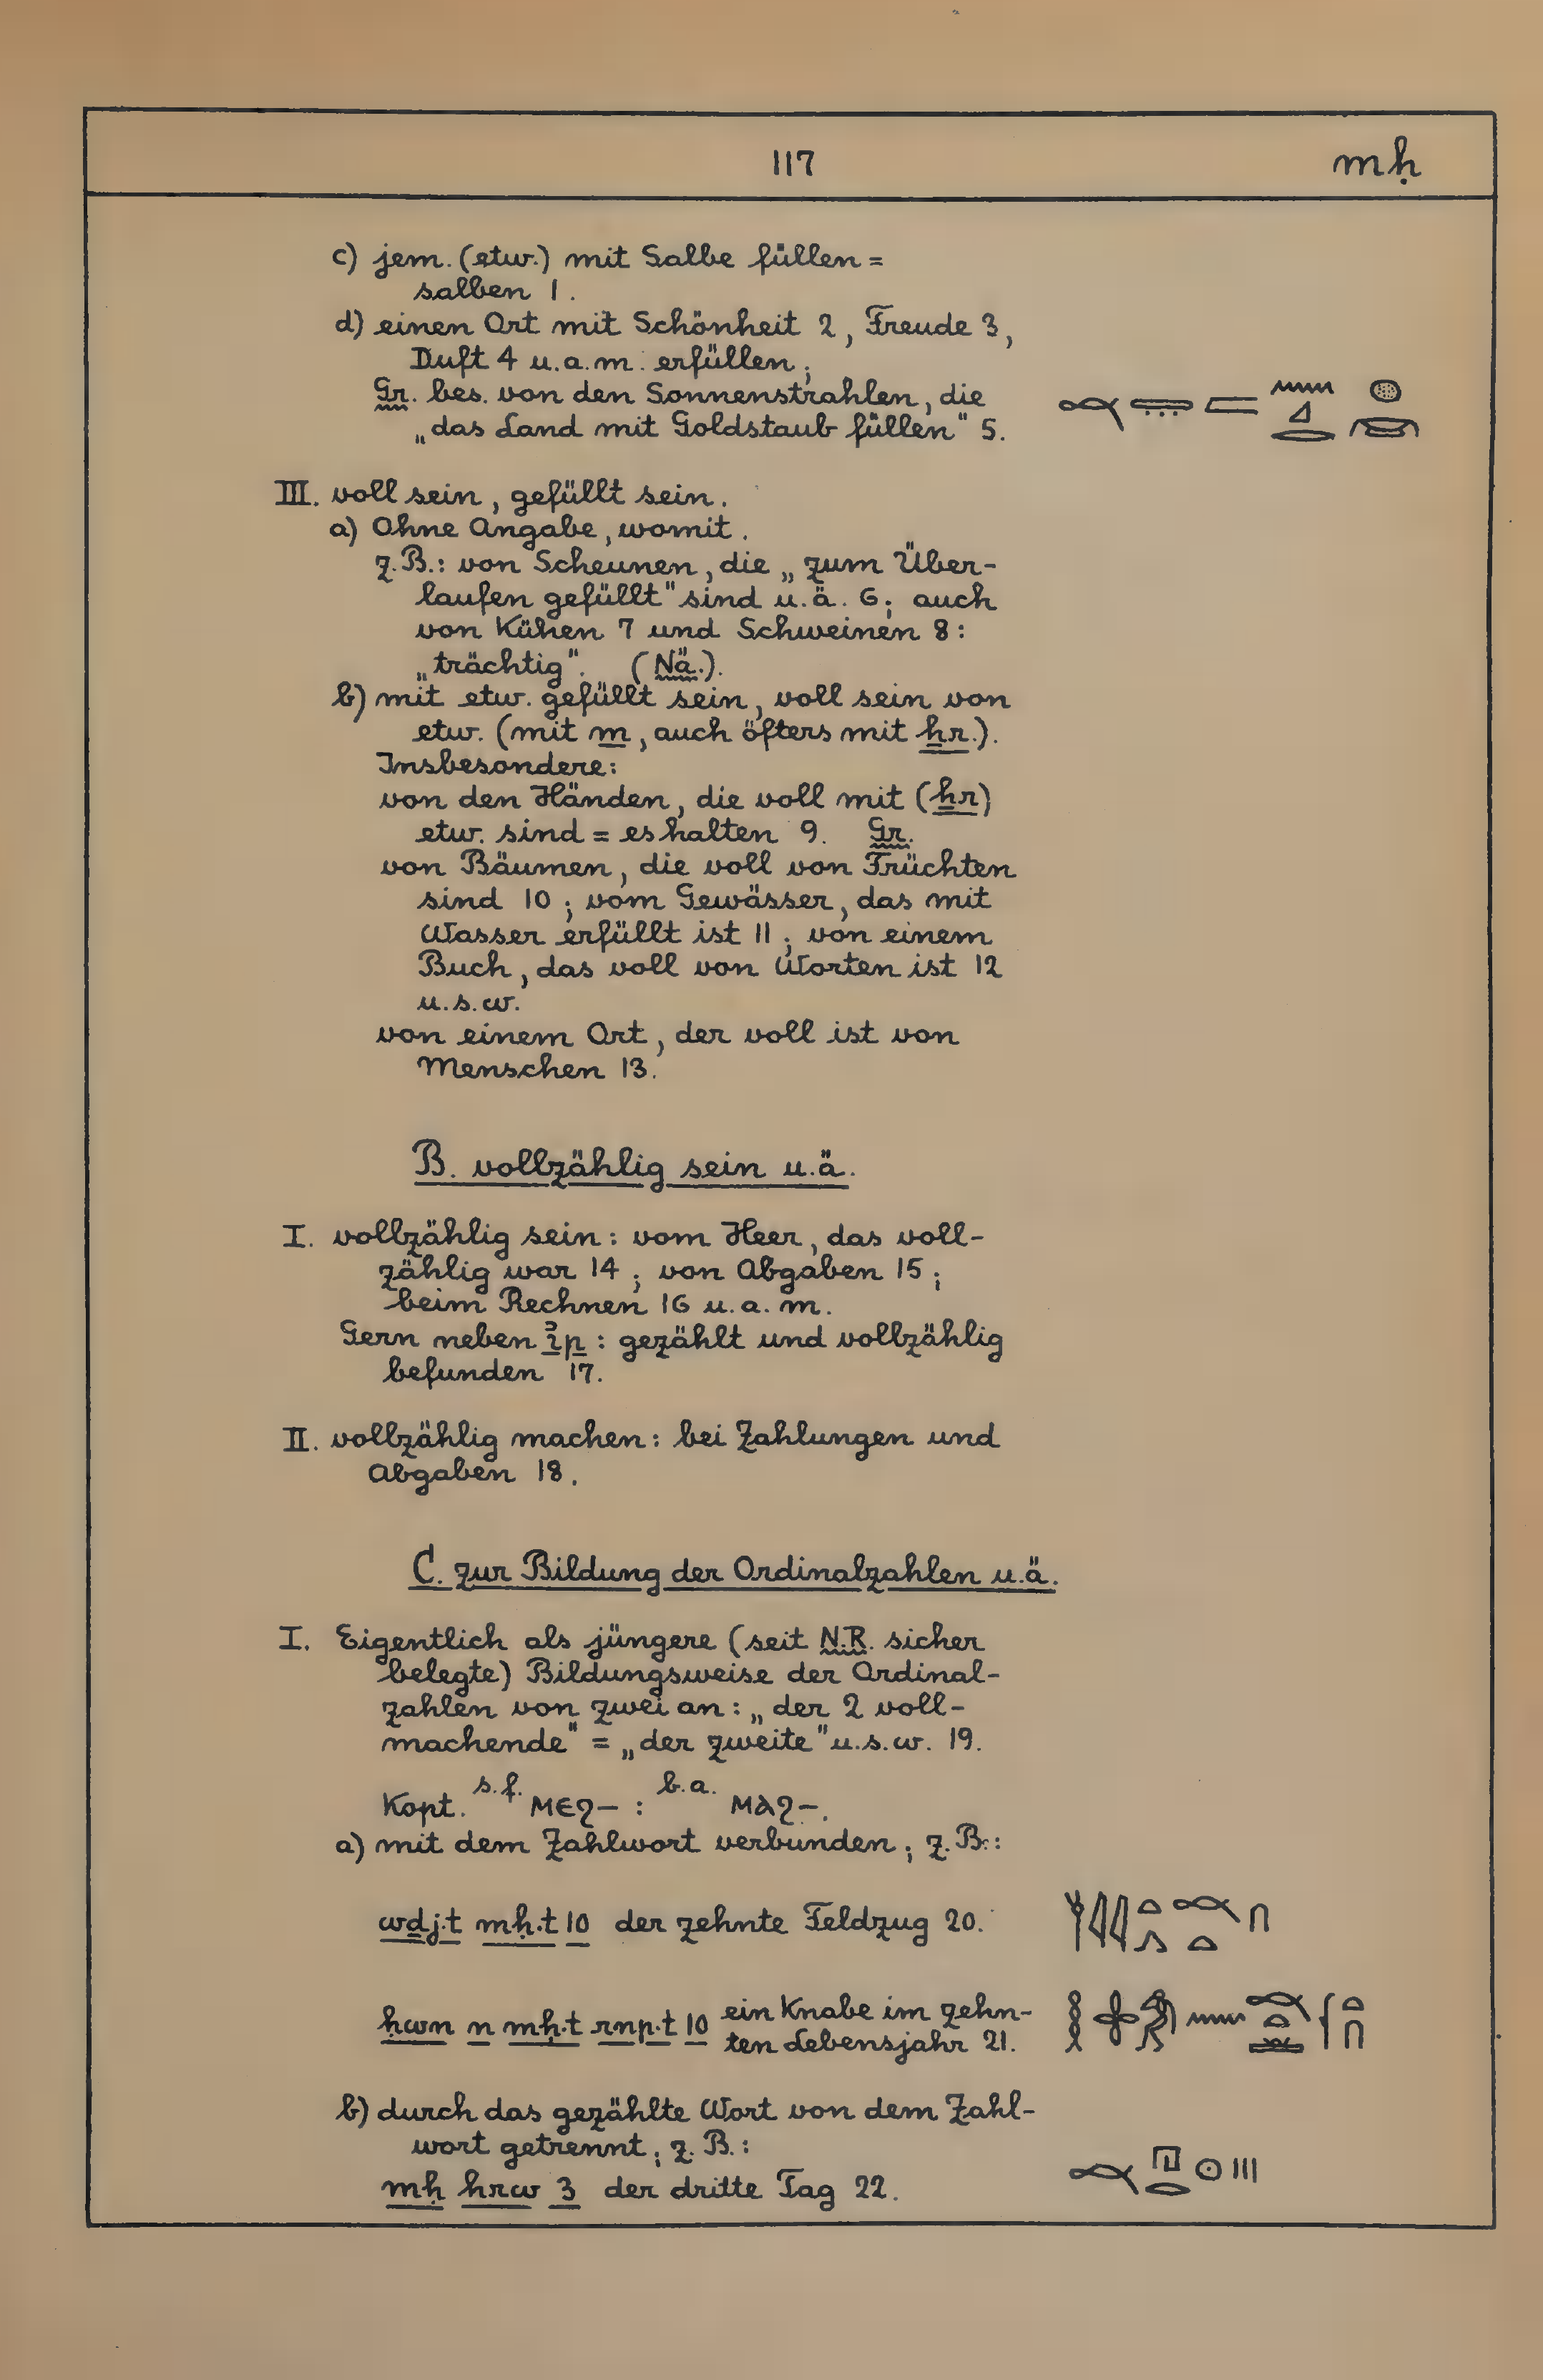 117
mḥ
c) jem. (etw.) mit Salbe füllen =
salben 1.
d) einen Ort mit Schönheit 2, Freude 3,
Duft 4 u.a.m. erfüllen;
Gr. bes. von den Sonnenstrahlen, die
„das Land mit Goldstaub füllen" 5.
III. voll sein, gefüllt sein.
a) Ohne Angabe, womit.
z.B.: von Scheunen, die „zum Über-
laufen gefüllt" sind u.ä. 6; auch
von Kühen 7 und Schweinen 8:
„trächtig". (Nä.).
b) mit etw. gefüllt sein, voll sein von
etw. (mit m, auch öfters mit ẖr.).
Insbesondere:
von den Händen, die voll mit (ẖr)
etw. sind = es halten 9. Gr.
von Bäumen, die voll von Früchten
sind 10; vom Gewässer, das mit
Wasser erfüllt ist 11; von einem
Buch, das voll von Worten ist 12
u.s.w.
von einem Ort, der voll ist von
Menschen 13.
B. vollzählig sein u.ä.
I. vollzählig sein: vom Heer, das voll-
zählig war 14; von Abgaben 15;
beim Rechnen 16 u.a.m.
Gern neben ỉp: gezählt und vollzählig
befunden 17.
II. vollzählig machen: bei Zahlungen und
Abgaben 18.
C. zur Bildung der Ordinalzahlen u.ä.
I. Eigentlich als jüngere (seit N.R. sicher
belegte) Bildungsweise der Ordinal-
zahlen von zwei an: „der 2 voll-
machende" = „der zweite" u.s.w. 19.
Kopt. s.f. ⲙⲉϩ- : b.a. ⲙⲁϩ-.
a) mit dem Zahlwort verbunden; z.B.:
wḏj.t mḥ.t 10 der zehnte Feldzug 20.
ḥwn n mḥ.t rnp.t 10 ein Knabe im zehn-
ten Lebensjahr 21.
b) durch das gezählte Wort von dem Zahl-
wort getrennt; z.B.:
mḥ hrw 3 der dritte Tag 22.